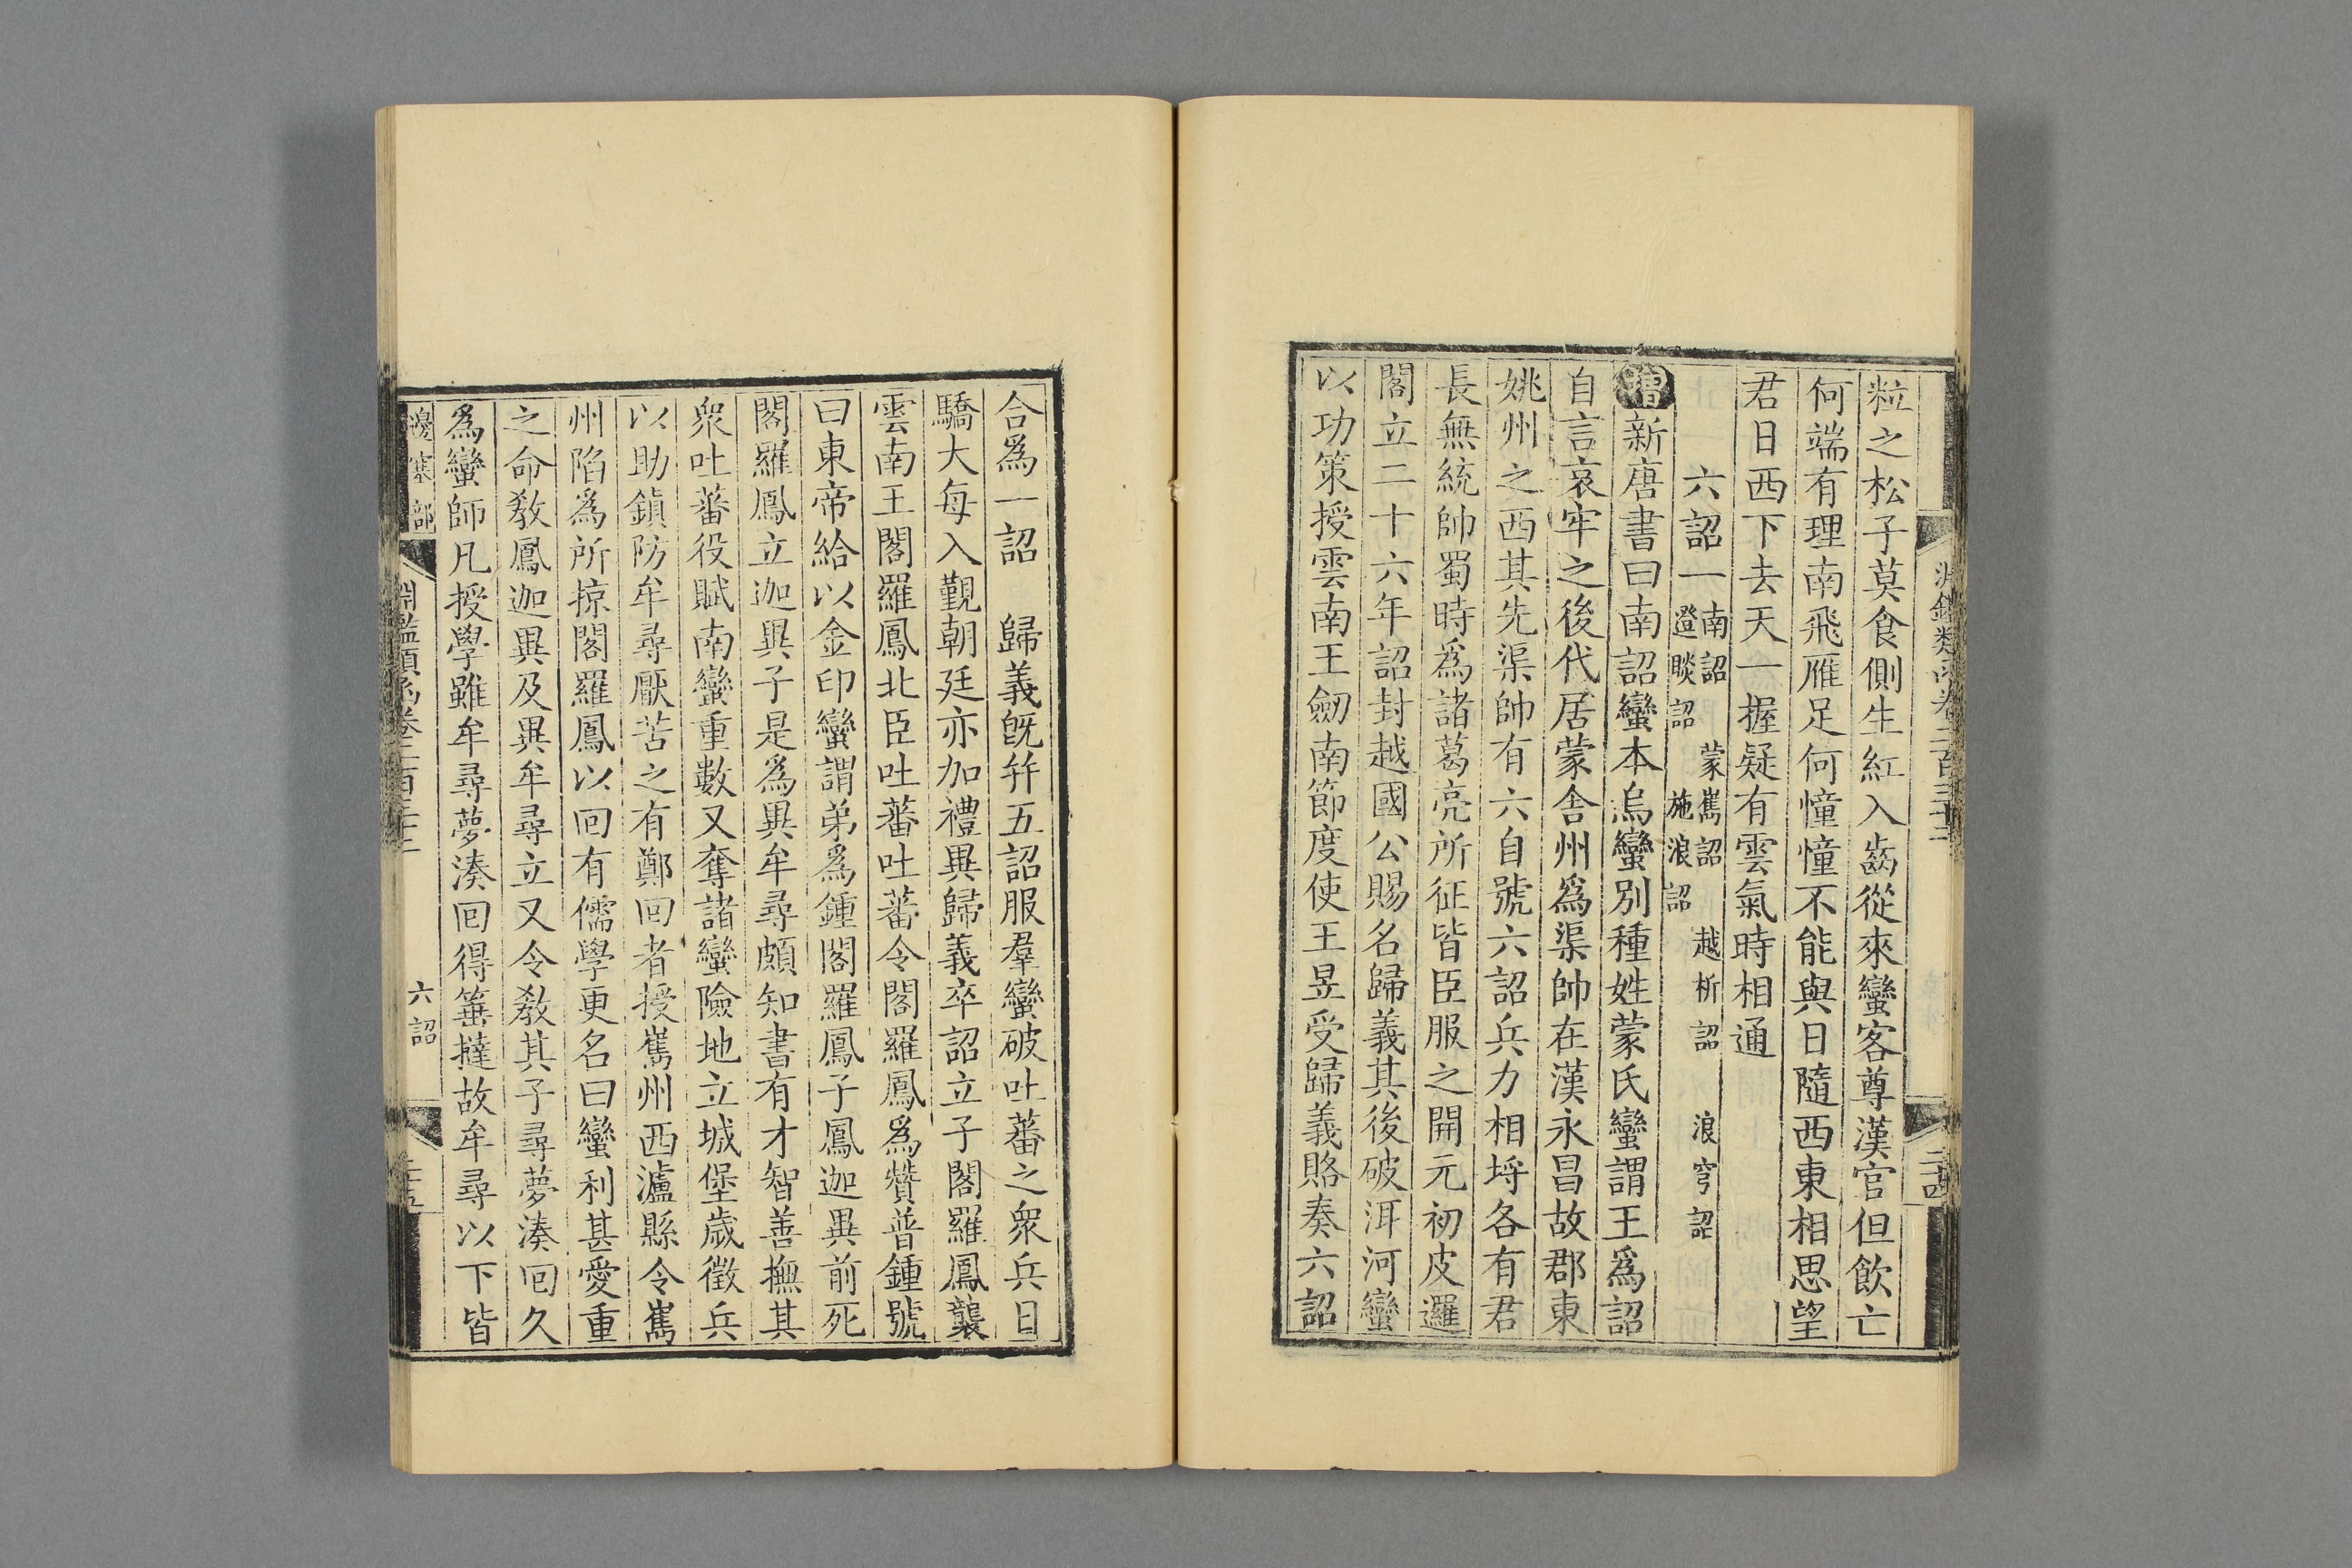 粒之松子莫食側生紅入齒從來蠻客尊漢官但飲亡
何端有理南飛雁足何憧憧不能與日隨西東相思望
君日西下去天一握疑有雲氣時相通
六詔一南詔 蒙雟詔 越析詔 浪穹詔
澄睒詔 施浪詔
增新唐書曰南詔蠻本烏蠻別種姓蒙氏蠻謂王爲詔
自言哀牢之後代居蒙舍州爲渠帥在漢永昌故郡東
姚州之西其先渠帥有六自號六詔兵力相埒各有君
長無統帥蜀時爲諸葛亮所征皆臣服之開元初皮邏
閣立二十六年詔封越國公賜名歸義其後破洱河蠻
以功策授雲南王劒南節度使王昱受歸義賂奏六詔
合爲一詔 歸義旣幷五詔服羣蠻破吐蕃之衆兵日
驕大每入覲朝廷亦加禮異歸義卒詔立子閣羅鳳襲
雲南王閣羅鳳北臣吐蕃吐蕃令閣羅鳳爲贊普鍾號
曰東帝給以金印蠻謂弟爲鍾閣羅鳳子鳳迦異前死
閣羅鳳立迦異子是爲異牟尋頗知書有才智善撫其
衆吐蕃役賦南蠻重數又奪諸蠻險地立城堡歲徵兵
以助鎮防牟尋厭苦之有鄭回者授雟州西瀘縣令雟
州陷爲所掠閣羅鳳以回有儒學更名曰蠻利甚愛重
之命敎鳳迦異及異牟尋立又令敎其子尋夢湊回久
爲蠻師凡授學雖牟尋夢湊回得箠撻故牟尋以下皆
邊塞部
淵鑑類函卷二百三十二
六詔
二十五